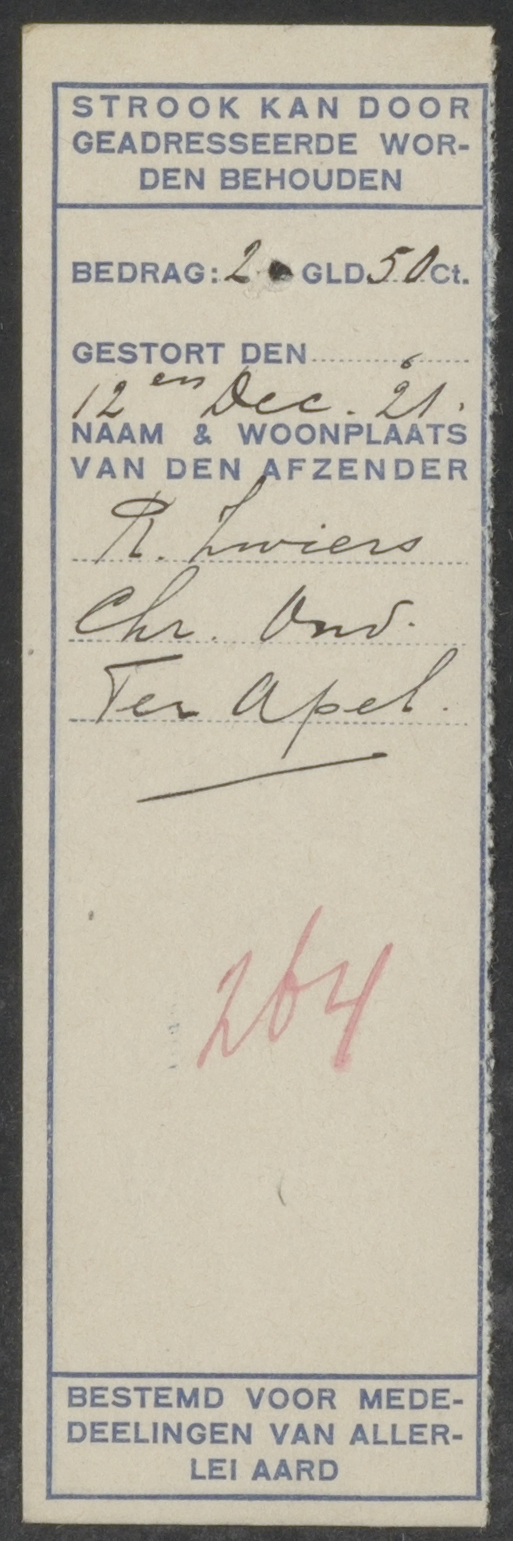 STROOK KAN DOOR
GEADRESSEERDE WOR-
DEN BEHOUDEN
BEDRAG: 2 GLD 50 Ct.
GESTORT DEN
12 en Dec. '21.
NAAM & WOONPLAATS
VAN DEN AFZENDER
R. Zwiers
Chr. Ond.
Ter Apel.
264
BESTEMD VOOR MEDE-
DEELINGEN VAN ALLER-
LEI AARD